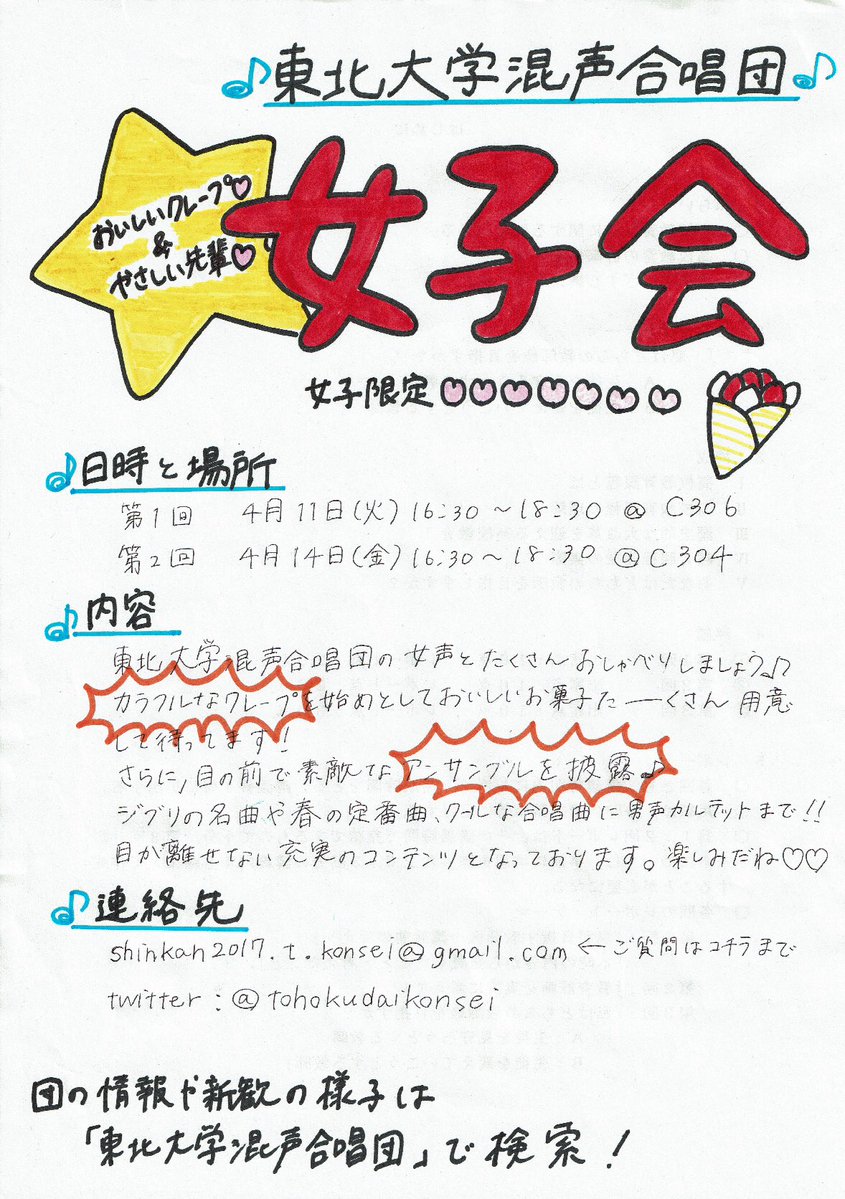 ♪東北大学混声合唱団♪
おいしいクレープ♡
&
やさしい先輩♡
女子会
女子限定♡♡♡♡♡♡♡♡
♪日時と場所
第1回 4月11日(火) 16:30~18:30 @ C306
第2回 4月14日(金) 16:30~18:30 @ C304
♪内容
東北大学混声合唱団の女声とたくさんおしゃべりしましょう♪
カラフルなクレープを始めとしておいしいお菓子たーーくさん用意
して待ってます!
さらに,目の前で素敵なアンサンブルを披露♪
ジブリの名曲や春の定番曲、クールな合唱曲に男声カルテットまで!!
目が離せない充実のコンテンツとなっております。楽しみだね♡♡
♪連絡先
shinkan2017.t.konsei@gmail.com ←ご質問はコチラまで
twitter:@tohokudaikonsei
団の情報や新歓の様子は
「東北大学混声合唱団」で検索!